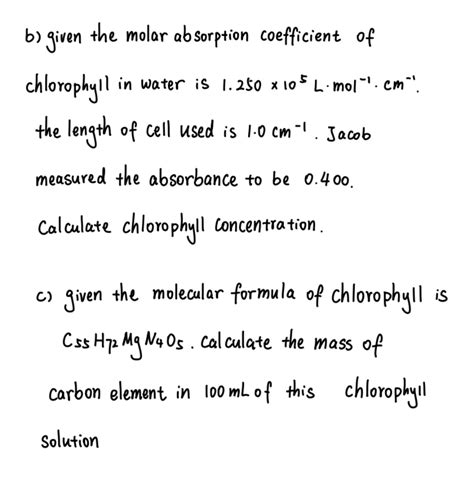 b) given the molar absorption coefficient of
chlorophyll in water is 1.250 × 10⁵ L·mol⁻¹·cm⁻¹.
the length of cell used is 1.0 cm⁻¹. Jacob
measured the absorbance to be 0.400.
Calculate chlorophyll concentration.
c) given the molecular formula of chlorophyll is
C₅₅H₇₂MgN₄O₅. Calculate the mass of
carbon element in 100 mL of this chlorophyll
solution